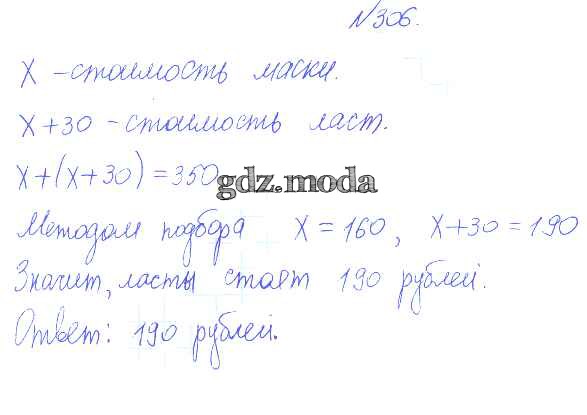 №306.
х – стоимость маски.
х+30 – стоимость ласт.
х+(х+30)=350
gdz.moda
Методом подбора х=160, х+30=190
Значит, ласты стоят 190 рублей.
Ответ: 190 рублей.